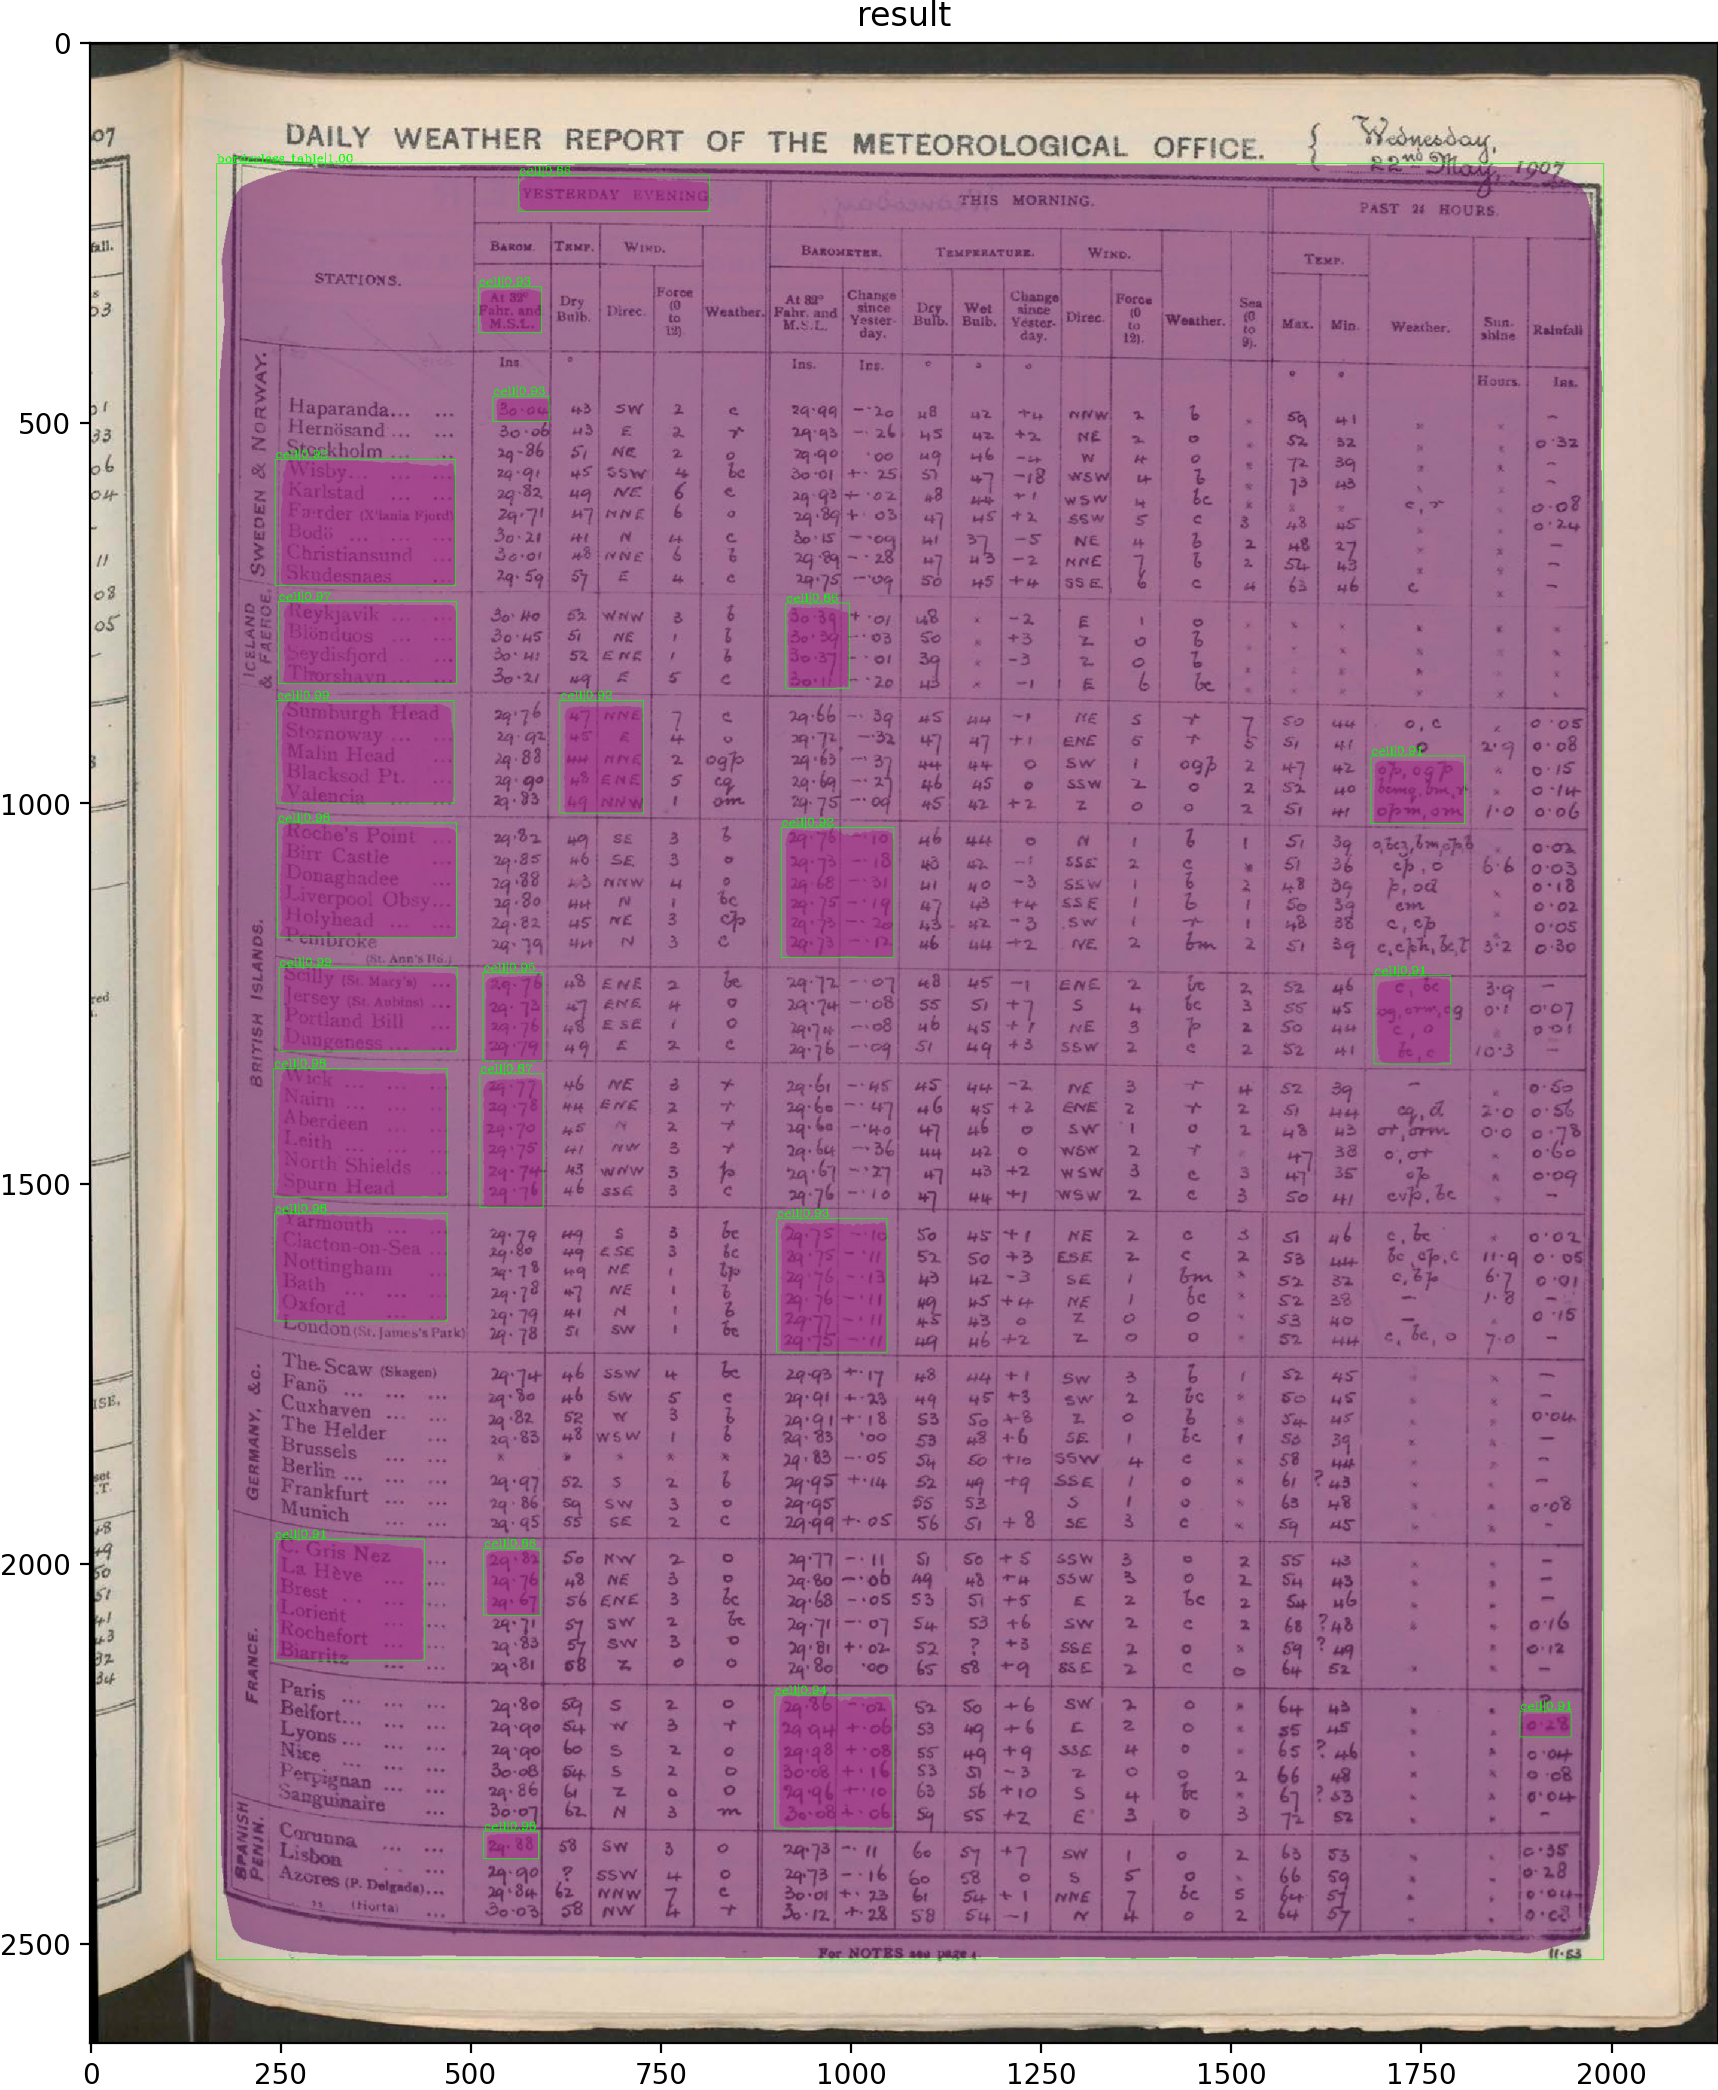 result
DAILY WEATHER REPORT OF THE METEOROLOGICAL OFFICE.
Wednesday,
22nd May, 1907
YESTERDAY EVENING THIS MORNING. PAST 24 HOURS.
STATIONS. BAROM. TEMP. WIND. BAROMETER. TEMPERATURE. WIND. TEMP.
At 32° Fahr. and M.S.L. Dry Bulb. Direc. Force (0 to 12) Weather. At 32° Fahr. and M.S.L. Change since Yesterday. Dry Bulb. Wet Bulb. Change since Yesterday. Direc. Force (0 to 12). Weather. Sea (0 to 9). Max. Min. Weather. Sunshine Rainfall
Ins. ° Ins. Ins. ° ° ° ° ° Hours. Ins.
SWEDEN & NORWAY.
Haparanda... ... 30.04 43 SW 2 c 29.99 -.20 48 42 +4 NNW 2 b 59 41 -
Hernösand ... ... 30.06 43 E 2 r 29.93 -.26 45 42 +2 NE 2 o 52 32 0.32
Stockholm ... 29.86 51 NE 2 o 29.90 .00 49 46 -4 W 4 o 72 39 -
Wisby... ... ... 29.91 45 SSW 4 bc 30.01 +.25 57 47 -18 WSW 4 b 73 43 -
Karlstad ... ... 29.82 49 NE 6 c 29.93 +.02 48 44 +1 WSW 4 bc c, r 0.08
Færder (X'iania Fjord) 29.71 47 NNE 6 o 29.89 +.03 47 45 +2 SSW 5 c 3 48 45 0.24
Bodö ... ... ... 30.21 41 N 4 c 30.15 -.09 41 37 -5 NE 4 b 2 48 27 -
Christiansund ... 30.01 48 NNE 6 b 29.89 -.28 47 43 -2 NNE 7 b 2 54 43 -
Skudesnaes ... 29.59 57 E 4 c 29.75 -.09 50 45 +4 SSE 6 c 4 63 46 c -
ICELAND & FAEROE.
Reykjavik ... ... 30.40 52 WNW 3 b 30.39 +.01 48 -2 E 1 o
Blönduos ... ... 30.45 51 NE 1 b 30.39 -.03 50 +3 Z 0 b
Seydisfjord ... ... 30.41 52 ENE 1 b 30.37 -.01 39 -3 Z 0 b
Thorshavn ... ... 30.21 49 E 5 c 30.11 -.20 43 -1 E 6 bc
BRITISH ISLANDS.
Sumburgh Head 29.76 47 NNE 7 c 29.66 -.39 45 44 -1 NE 5 r 7 50 44 o, c 0.05
Stornoway ... ... 29.92 45 E 4 o 29.72 -.32 47 47 +1 ENE 5 r 5 51 41 2.9 0.08
Malin Head ... 29.88 44 NNE 2 ogp 29.63 -.37 44 44 0 SW 1 ogp 2 47 42 op, ogp 0.15
Blacksod Pt. ... 29.90 48 ENE 5 cq 29.69 -.27 46 45 0 SSW 2 o 2 52 40 0.14
Valencia ... ... 29.83 49 NNW 1 om 29.75 -.09 45 42 +2 Z 0 o 2 51 41 opm, om 1.0 0.06
Roche's Point ... 29.82 49 SE 3 b 29.76 -.10 46 44 0 N 1 b 1 51 39 0.02
Birr Castle ... 29.85 46 SE 3 o 29.73 -.18 43 42 -1 SSE 2 c 51 36 cp, o 6.6 0.03
Donaghadee ... 29.88 43 NNW 4 o 29.68 -.31 41 40 -3 SSW 1 b 2 48 39 p, od 0.18
Liverpool Obsy... 29.80 44 N 1 bc 29.75 -.19 47 43 +4 SSE 1 b 1 50 39 cm 0.02
Holyhead ... ... 29.82 45 NE 3 cp 29.73 -.20 43 42 -3 SW 1 r 1 48 38 c, cp 0.05
Pembroke (St. Ann's Hd.) 29.79 44 N 3 c 29.73 -.12 46 44 +2 NE 2 bm 2 51 39 3.2 0.30
Scilly (St. Mary's) ... 29.76 48 ENE 2 bc 29.72 -.07 48 45 -1 ENE 2 bc 2 52 46 c, bc 3.9 -
Jersey (St. Aubins) ... 29.73 47 ENE 4 o 29.74 -.08 55 51 +7 S 4 bc 3 55 45 og, orm, cg 0.1 0.07
Portland Bill ... 29.76 48 ESE 1 o 29.74 -.08 46 45 +1 NE 3 p 2 50 44 c, o 0.01
Dungeness ... ... 29.79 49 E 2 c 29.76 -.09 51 49 +3 SSW 2 c 2 52 41 bc, c 10.3 -
Wick ... ... ... 29.77 46 NE 3 r 29.61 -.45 45 44 -2 NE 3 r 4 52 39 - 0.50
Nairn ... ... ... 29.78 44 ENE 2 r 29.60 -.47 46 45 +2 ENE 2 r 2 51 44 cg, d 2.0 0.56
Aberdeen ... ... 29.70 45 N 2 r 29.60 -.40 47 46 0 SW 1 o 2 48 43 or, orm 0.0 0.78
Leith ... ... ... 29.75 41 NW 3 r 29.64 -.36 44 42 0 WSW 2 r 47 38 o, or 0.60
North Shields ... 29.74 43 WNW 3 p 29.67 -.27 47 43 +2 WSW 3 c 3 47 35 op 0.09
Spurn Head ... 29.76 46 SSE 3 c 29.76 -.10 47 44 +1 WSW 2 c 3 50 41 cvp, bc -
Yarmouth ... ... 29.79 49 S 3 bc 29.75 -.10 50 45 +1 NE 2 c 3 51 46 c, bc 0.02
Clacton-on-Sea ... 29.80 49 ESE 3 bc 29.75 -.11 52 50 +3 ESE 2 c 2 53 44 bc, cp, c 11.9 0.05
Nottingham ... 29.78 49 NE 1 bp 29.76 -.13 43 42 -3 SE 1 bm 52 32 c, bp 6.7 0.01
Bath ... ... ... 29.78 47 NE 1 b 29.76 -.11 49 45 +4 NE 1 bc 52 38 - 1.8 -
Oxford ... ... 29.79 41 N 1 b 29.77 -.11 45 43 0 Z 0 o 53 40 - 0.15
London (St. James's Park) 29.78 51 SW 1 bc 29.75 -.11 49 46 +2 Z 0 o 52 44 c, bc, o 7.0 -
GERMANY, &c.
The Scaw (Skagen) 29.74 46 SSW 4 bc 29.93 +.17 48 44 +1 SW 3 b 1 52 45 -
Fanö ... ... ... 29.80 46 SW 5 c 29.91 +.23 49 45 +3 SW 2 bc 50 45 -
Cuxhaven ... ... 29.82 52 W 3 b 29.91 +.18 53 50 +8 Z 0 b 54 45 0.04
The Helder ... 29.83 48 WSW 1 b 29.83 .00 53 48 +6 SE 1 bc 1 53 39 -
Brussels ... ... 29.83 -.05 54 50 +10 SSW 4 c 58 44 -
Berlin ... ... ... 29.97 52 S 2 b 29.95 +.14 52 49 +9 SSE 1 o 61 ? 43 -
Frankfurt ... ... 29.86 59 SW 3 o 29.95 55 53 S 1 o 63 48 0.08
Munich ... ... 29.95 55 SE 2 c 29.99 +.05 56 51 +8 SE 3 c 59 45 -
FRANCE.
C. Gris Nez ... 29.82 50 NW 2 o 29.77 -.11 51 50 +5 SSW 3 o 2 55 43 -
La Hève ... ... 29.76 48 NE 3 o 29.80 -.06 49 48 +4 SSW 3 o 2 54 43 -
Brest ... ... ... 29.67 56 ENE 3 bc 29.68 -.05 53 51 +5 E 2 bc 2 54 46 -
Lorient ... ... 29.71 57 SW 2 bc 29.71 -.07 54 53 +6 SW 2 c 2 68 ? 48 0.16
Rochefort ... ... 29.83 57 SW 3 o 29.81 +.02 52 ? +3 SSE 2 o 59 ? 49 0.12
Biarritz ... ... 29.81 58 Z 0 o 29.80 .00 65 58 +9 SSE 2 c 0 64 52 -
Paris ... ... ... 29.80 59 S 2 o 29.86 .02 52 50 +6 SW 2 o 64 43 ?
Belfort... ... ... 29.90 54 W 3 r 29.94 +.06 53 49 +6 E 2 o 55 45 0.28
Lyons ... ... ... 29.90 60 S 2 o 29.98 +.08 55 49 +9 SSE 4 o 65 ? 46 0.04
Nice ... ... ... 30.08 54 S 2 o 30.08 +.16 53 51 -3 Z 0 o 2 66 48 0.08
Perpignan ... ... 29.86 61 Z 0 o 29.96 +.10 63 56 +10 S 4 bc 67 ? 53 0.04
Sanguinaire ... 30.07 62 N 3 m 30.08 +.06 59 55 +2 E 3 o 3 72 52 -
SPANISH PENIN.
Corunna ... ... 29.88 58 SW 3 o 29.73 -.11 60 57 +7 SW 1 o 2 63 53 0.35
Lisbon ... ... 29.90 ? SSW 4 o 29.73 -.16 60 58 0 S 5 o 66 59 0.28
Azores (P. Delgada)... 29.84 62 NNW 7 c 30.01 +.23 61 54 +1 NNE 7 bc 5 64 57 0.04
" (Horta) ... 30.03 58 NW 4 r 30.12 +.28 58 54 -1 N 4 o 2 64 57
For NOTES see page 4.
11.53
0
500
1000
1500
2000
2500
0 250 500 750 1000 1250 1500 1750 2000